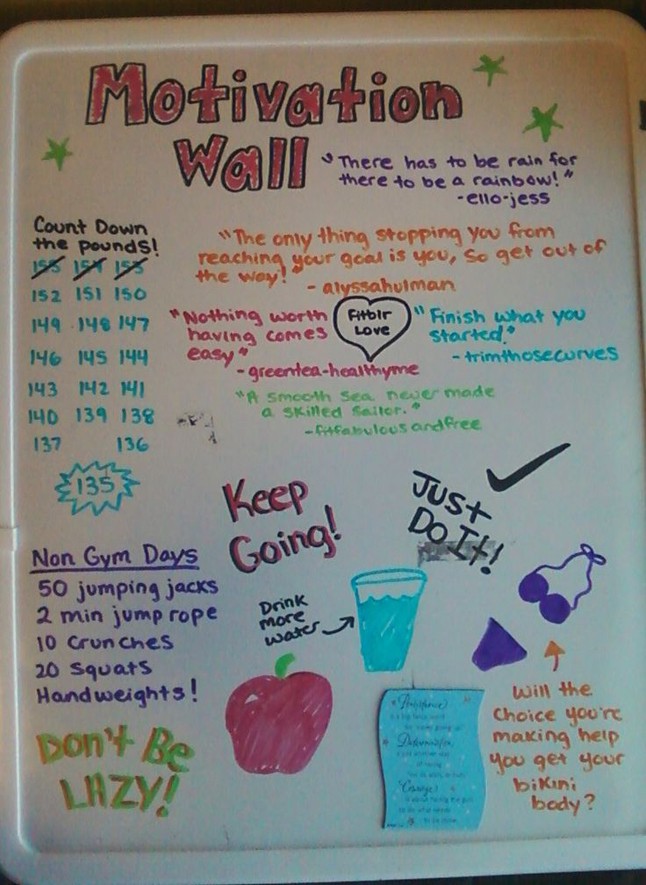 Motivation
Wall
"There has to be rain for
there to be a rainbow!"
-ello-jess
Count Down
the pounds!
155 154 153
152 151 150
149 148 147
146 145 144
143 142 141
140 139 138
137 136
135
"The only thing stopping you from
reaching your goal is you, so get out of
the way!"
- alyssahulman
"Nothing worth
having comes
easy"
- greentea-healthyme
Fitblr
Love
"Finish what you
started."
- trimthosecurves
"A smooth sea never made
a skilled sailor."
-fitfabulousandfree
Keep
Going!
Just
Do It!
Non Gym Days
50 jumping jacks
2 min jump rope
10 Crunches
20 Squats
Handweights!
Drink
more
water
Don't Be
LAZY!
Persistence
Determination
Courage
Will the
choice you're
making help
you get your
bikini
body?